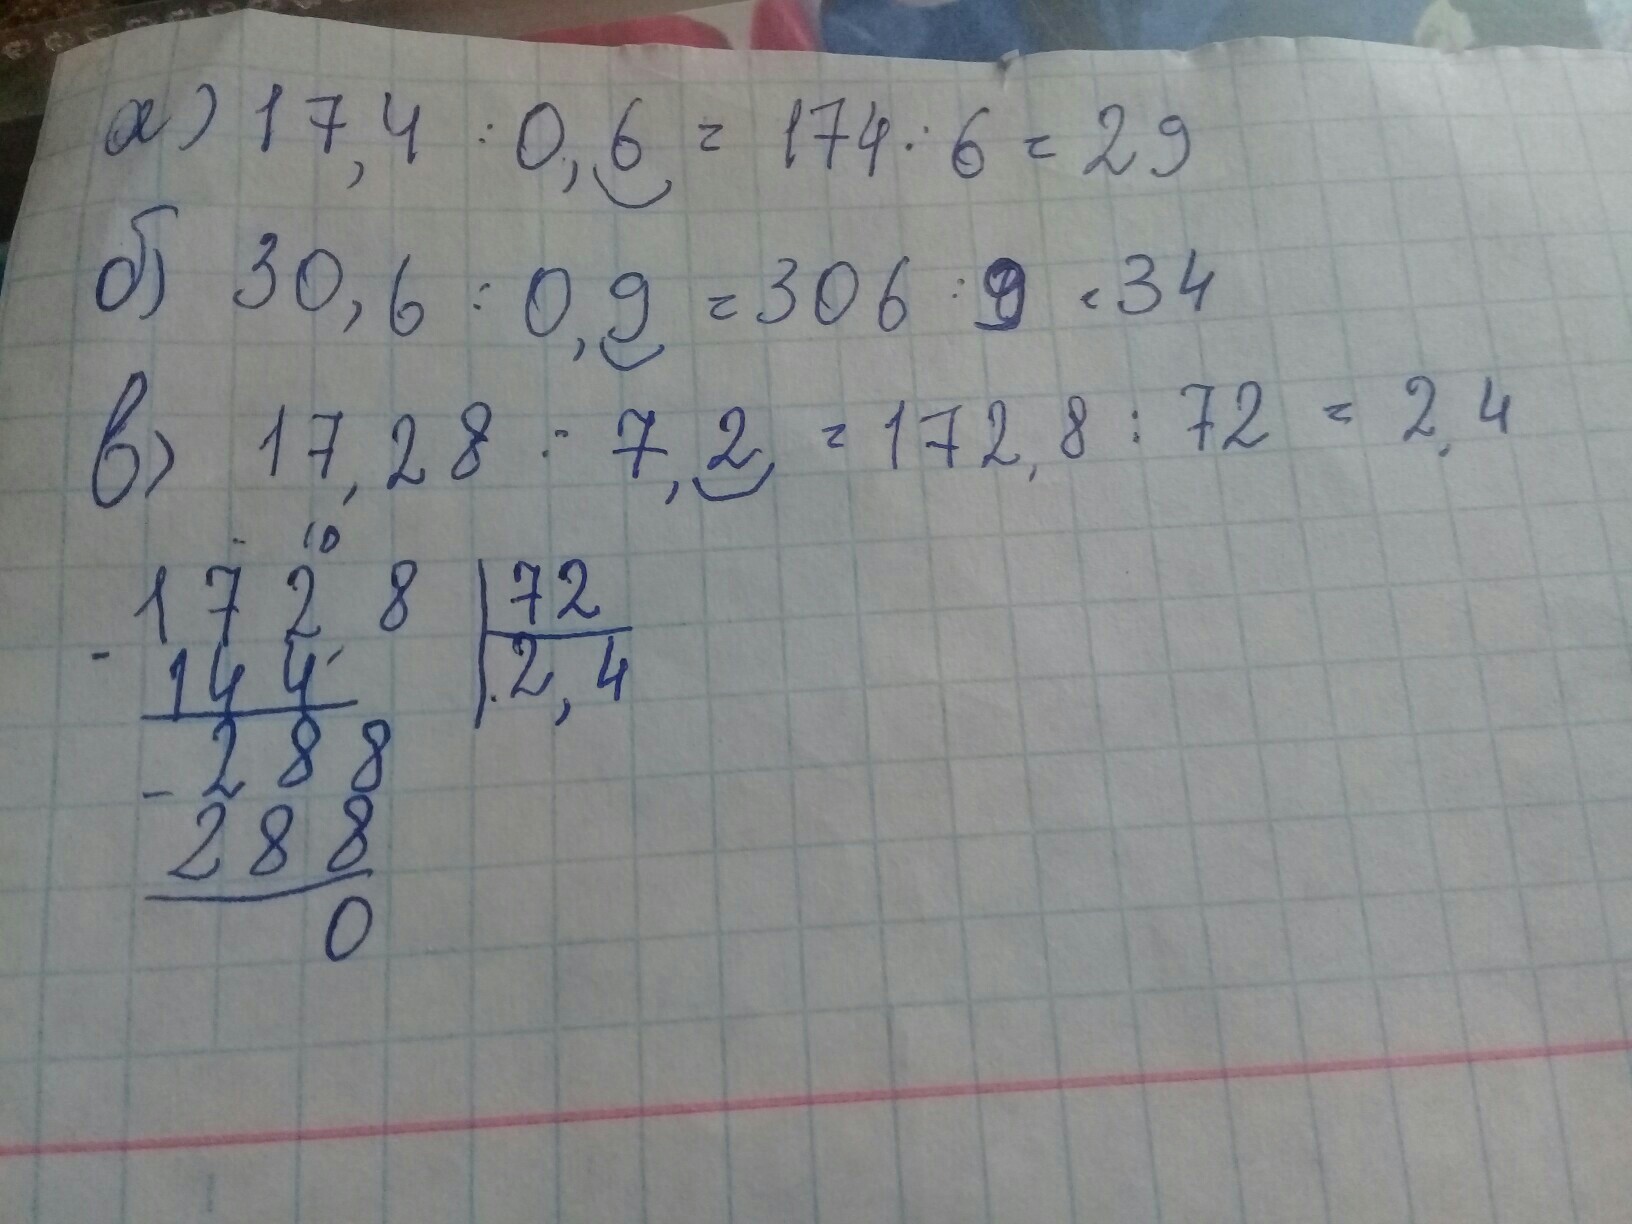 а) 17,4 : 0,6 = 174 : 6 = 29
б) 30,6 : 0,9 = 306 : 9 = 34
в) 17,28 : 7,2 = 172,8 : 72 = 2,4
10
172,8 72
- 144 2,4
- 288
288
0